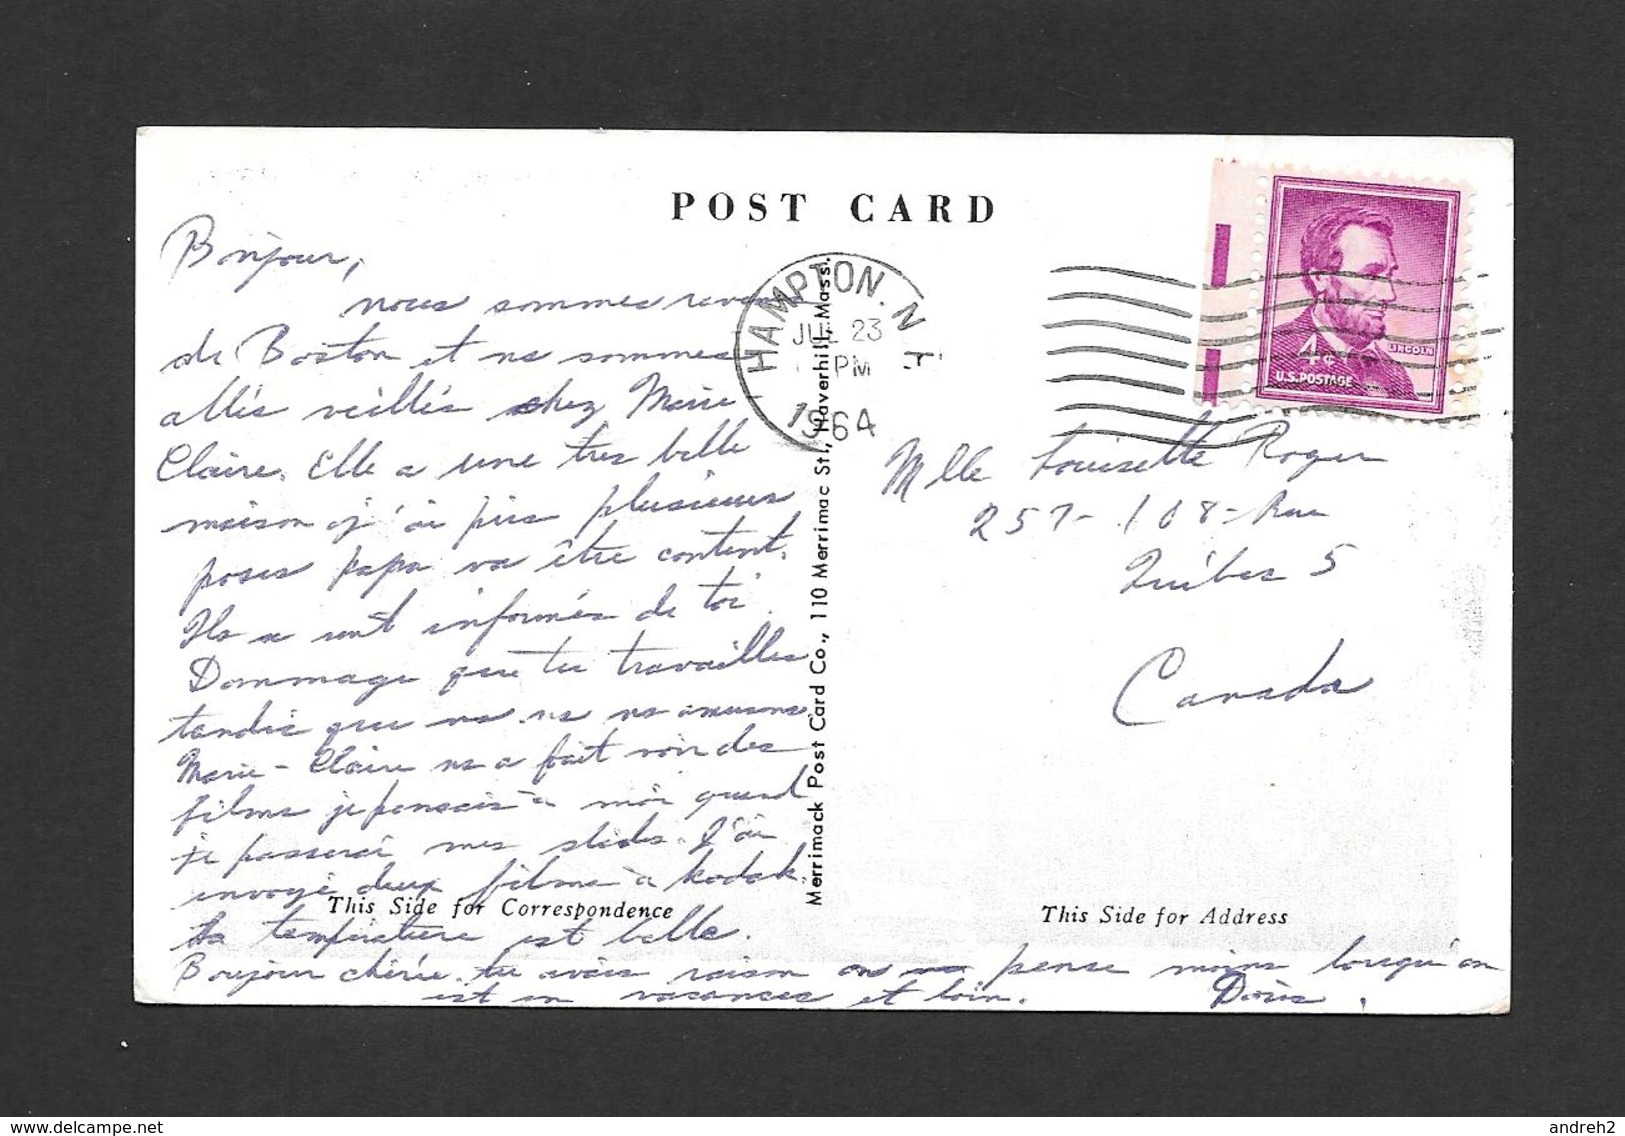 POST CARD
Bonjour,
nous sommes revenus
de Boston et ns sommes
allés veillés chez Marie-
Claire. Elle a une tres belle
maison j'ai pris plusieurs
poses papa va être content.
Ils se sont informés de toi.
Dommage que tu travailles
tandis que ns ns amusons
Marie-Claire ns a fait voir des
films je pensais à moi quand
je passerai mes slides. J'ai
envoyé deux films à kodak.
La température est belle.
Bonjour chérie. tu avais raison on pense moins lorsqu'on
est en vacances et loin. Doris.
HAMPTON, N.H.
JUL 23
PM
1964
4¢
LINCOLN
U.S. POSTAGE
Mlle Louisette Roger
257-108-Rue
Québec 5
Canada
Merrimack Post Card Co., 110 Merrimac St., Haverhill, Mass.
This Side for Correspondence
This Side for Address
www.delcampe.net
andreh2